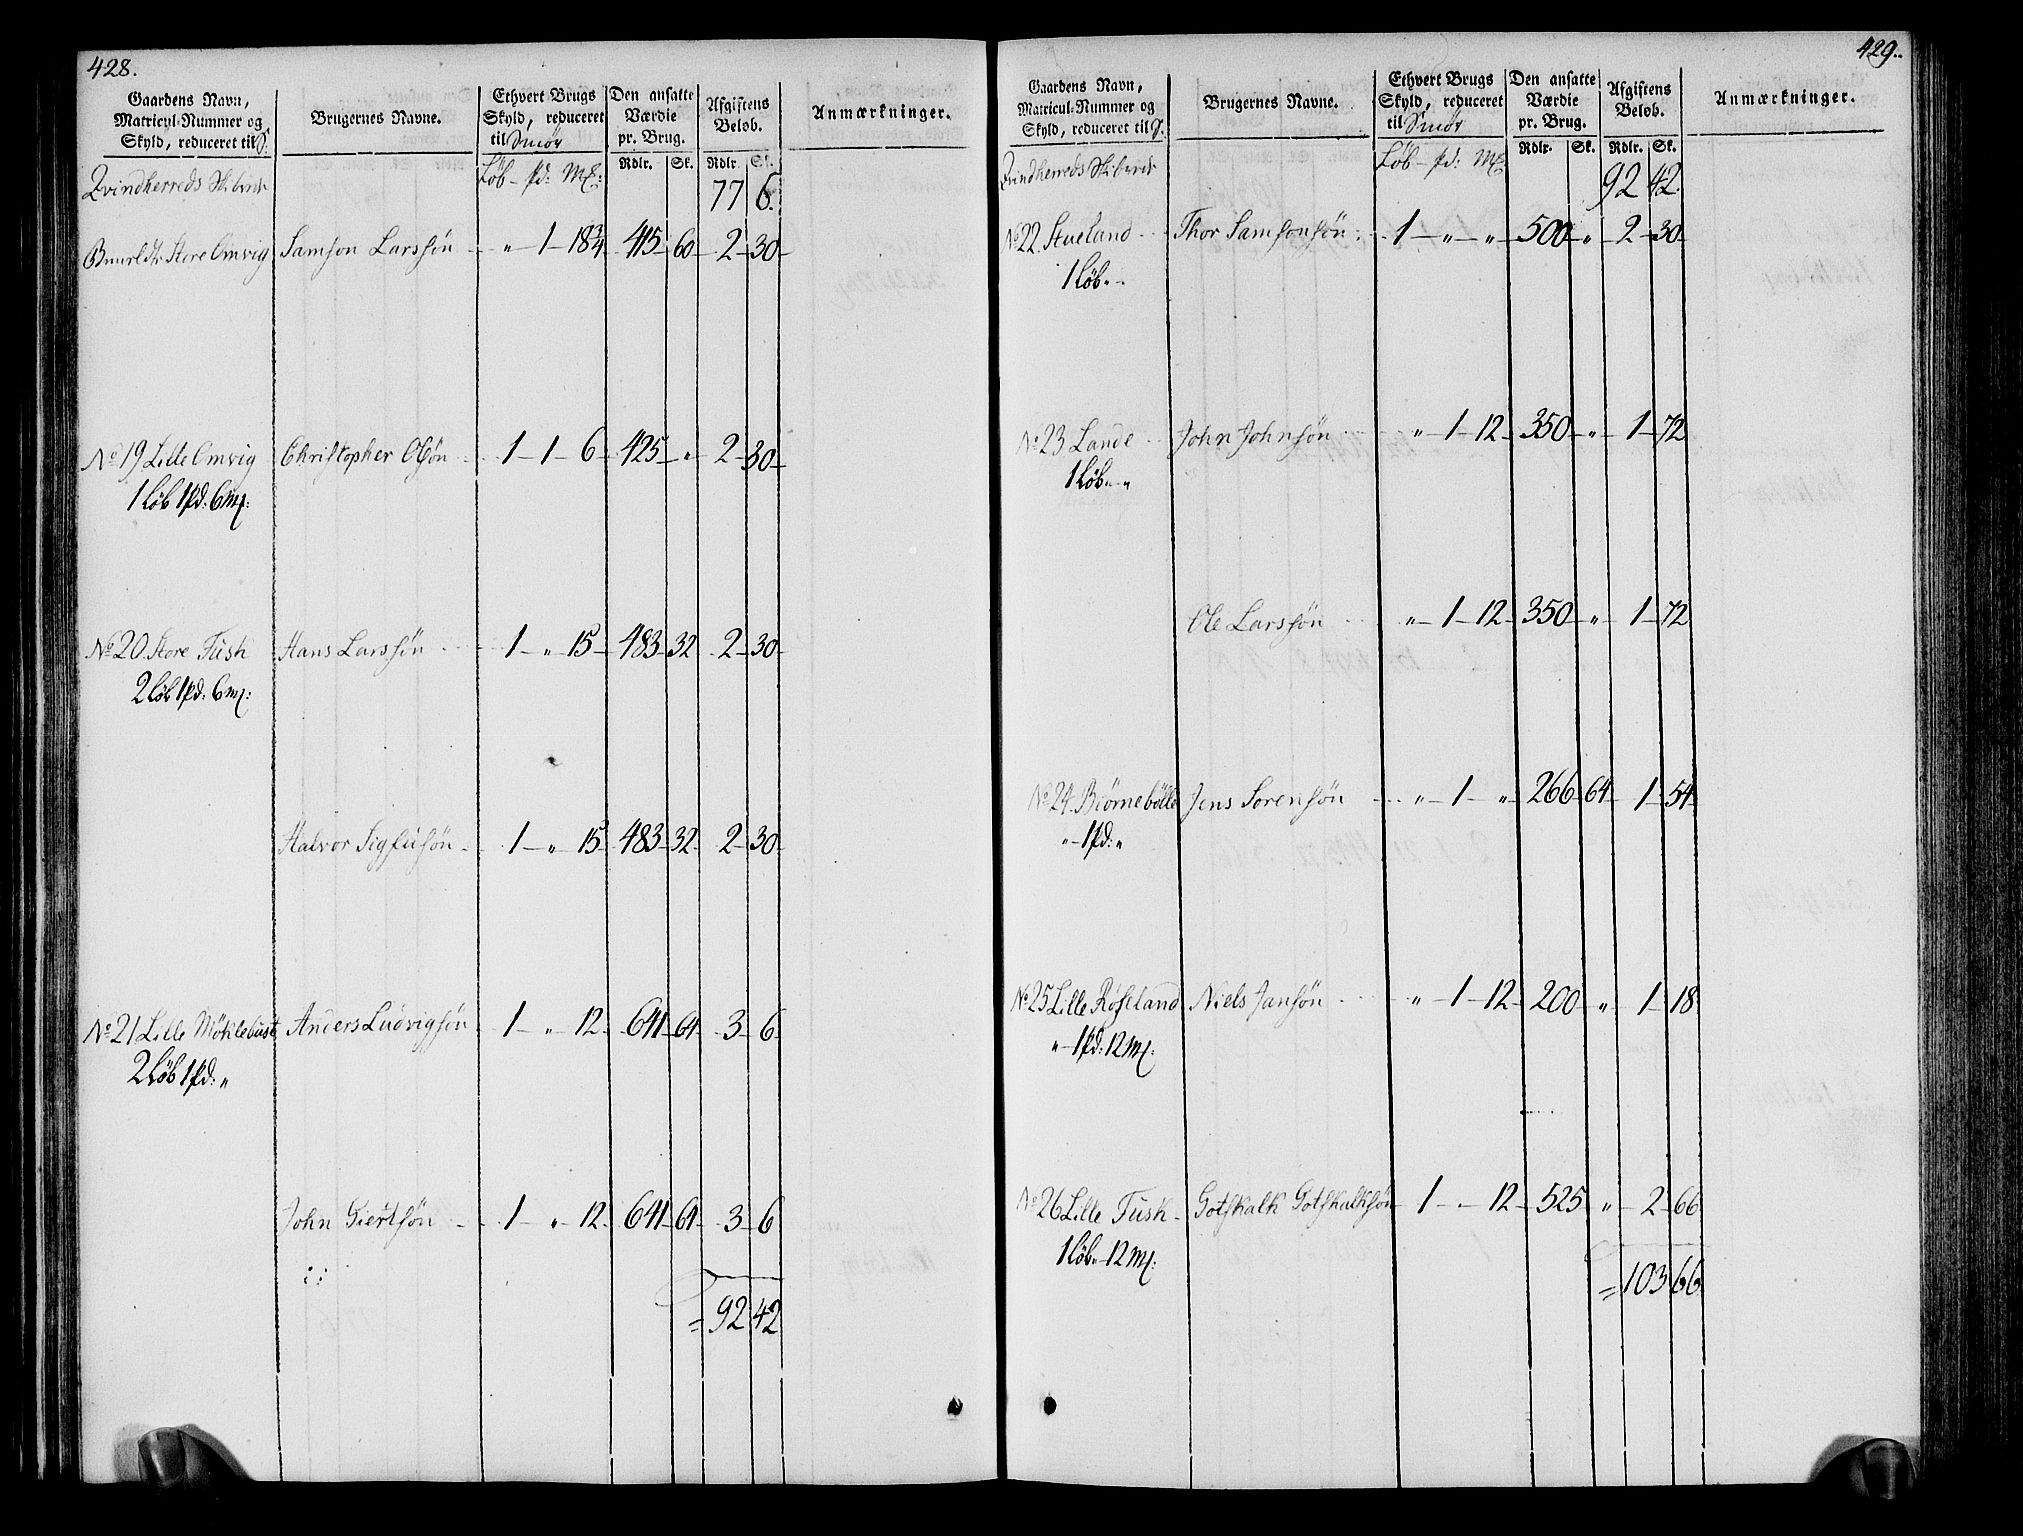 428.
Gaardens Navn, Matricul-Nummer og Skyld, reduceret til S: | Brugernes Navne. | Ethvert Brugs Skyld, reduceret til Smör | Den ansatte Værdie pr. Brug. | Afgiftens Beløb. | Anmærkninger.
Løb - pd: Mk: | Rdlr. Sk. | Rdlr. Sk.
Qvindherreds Skibrede 77 6.
Store Omvig Samson Larssøn " 1 18 3/4 415 60 2 30
No 19 Lille Omvig Christopher Olsøn 1 1 6 425 " 2 30
1 Løb 1 pd: 6 mk:
No 20. Store Tush Hans Larssøn 1 " 15 483 32 2 30
2 Løb 1 pd: 6 mk:
Halvor Sigfusøn 1 " 15 483 32 2 30
No 21 Lille Möhlebust Anders Ludvigsøn 1 " 12 641 64 3 6
2 Løb 1 pd: "
John Giertsøn 1 " 12 641 64 3 6
= 92 42
429.
Gaardens Navn, Matricul-Nummer og Skyld, reduceret til S: | Brugernes Navne. | Ethvert Brugs Skyld, reduceret til Smör | Den ansatte Værdie pr. Brug. | Afgiftens Beløb. | Anmærkninger.
Løb - pd: Mk | Rdlr. Sk. | Rdlr. Sk.
Qvindherreds Skibrede 92 42.
No 22. Stueland Thor Samsonsøn 1 " " 500 " 2 30
1 Løb " -
No 23 Lande John Johnsøn " 1 12 350 " 1 72
1 Løb " "
Ole Larssøn " 1 12 350 " 1 72
No 24. Biørnebølle Jens Sørensøn " 1 " 266 64 1 54
" 1 pd: "
No 25 Lille Røseland Niels Jansøn " 1 12 200 " 1 18
" 1 pd: 12 mk:
No 26 Lille Tush Gotskalk Gotskalksøn 1 - 12 525 " 2 66
1 Løb " 12 mk:
= 103 66